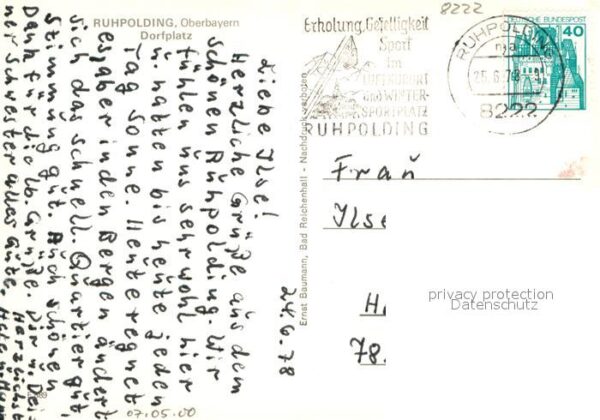 RUHPOLDING, Oberbayern
Dorfplatz
24.6.78
Liebe Ilse!
Herzliche Grüße aus dem
schönen Ruhpolding. Wir
fühlen uns sehr wohl hier
u. hatten bis heute jeden
Tag Sonne. Heute regnet
es, aber in den Bergen ändert
sich das schnell. Quartier gut,
Stimmung gut. Auch schönen
Dank für die lb. Grüße. Dir u. Dei-
ner Schwester alles Gute.
Herzlichst
07.05.00
Ernst Baumann, Bad Reichenhall - Nachdruck verboten
8222
Erholung, Geselligkeit
Sport
im
LUFTKURORT
und WINTER-
SPORTPLATZ
RUHPOLDING
RUHPOLDING
8222
DEUTSCHE BUNDESPOST
40
Frau
Ilse
H
78.
privacy protection
Datenschutz